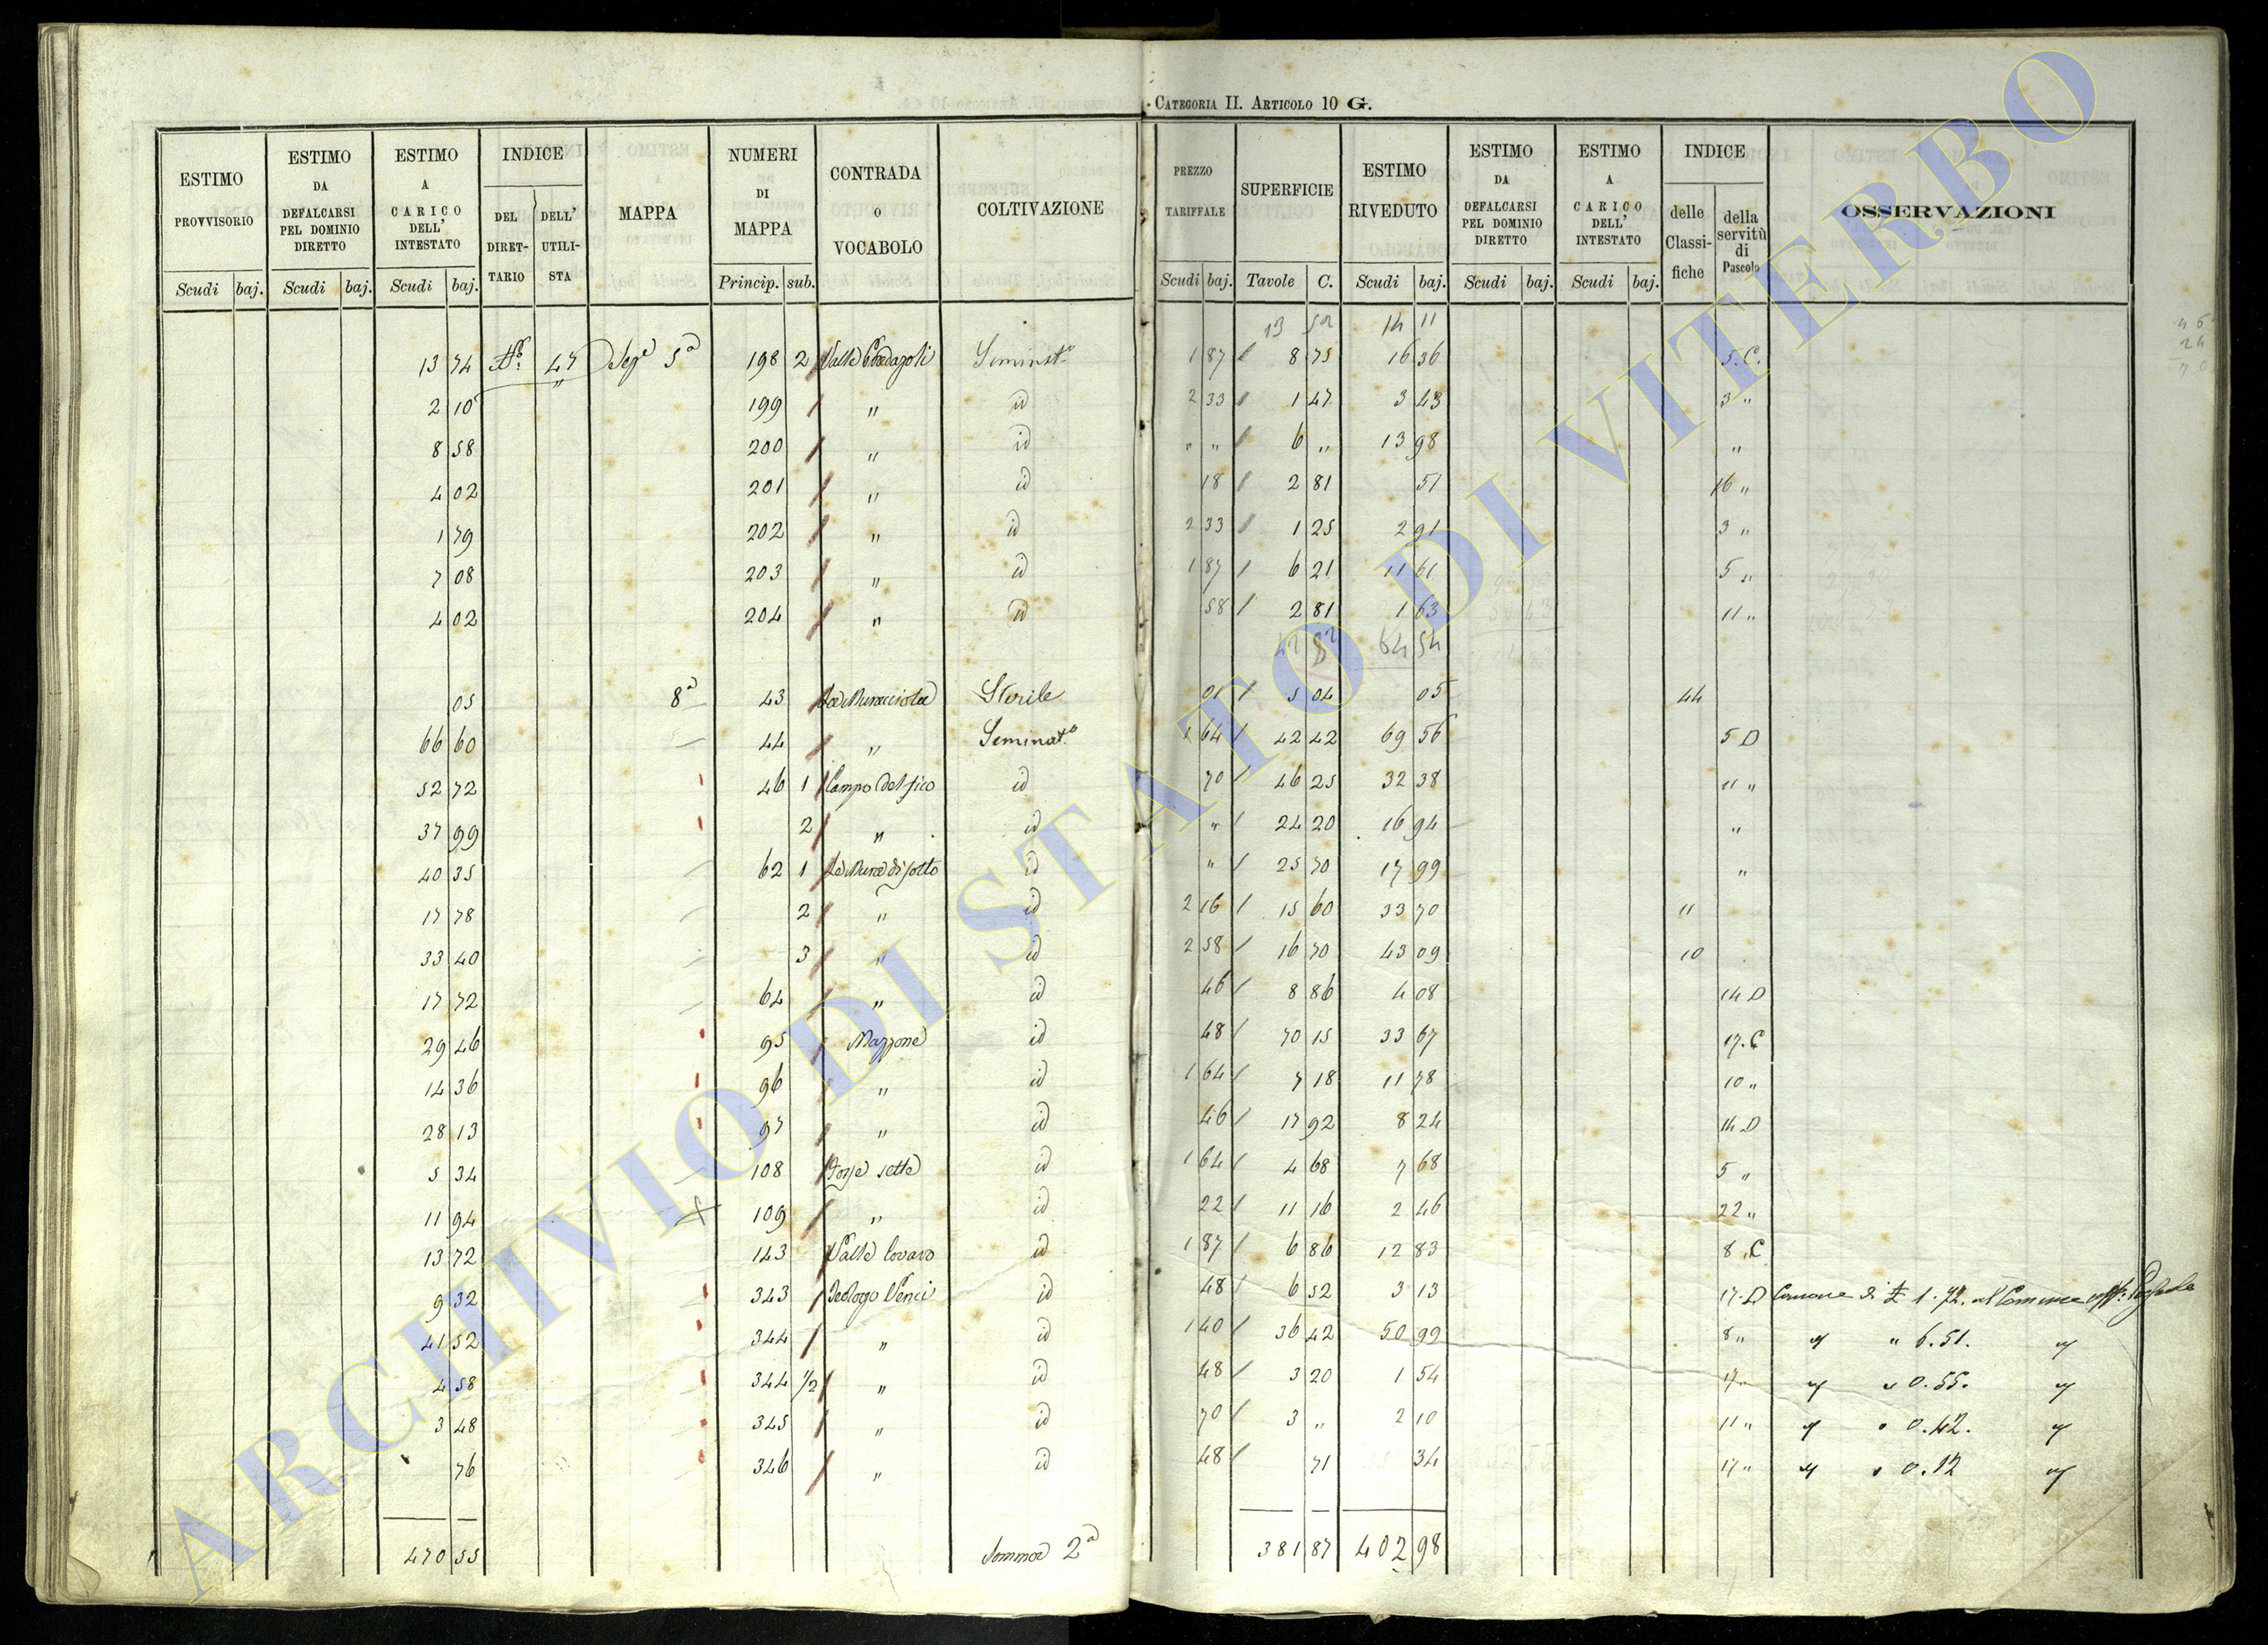 CATEGORIA II. ARTICOLO 10 G.
ESTIMO PROVVISORIO | ESTIMO DA DEFALCARSI PEL DOMINIO DIRETTO | ESTIMO A CARICO DELL' INTESTATO | INDICE DEL DIRETTARIO | DELL' UTILISTA | MAPPA | NUMERI DI MAPPA | CONTRADA O VOCABOLO | COLTIVAZIONE | PREZZO TARIFFALE | SUPERFICIE | ESTIMO RIVEDUTO | ESTIMO DA DEFALCARSI PEL DOMINIO DIRETTO | ESTIMO A CARICO DELL' INTESTATO | INDICE delle Classifiche | della servitù di Pascolo | OSSERVAZIONI
Scudi baj. Scudi baj. Scudi baj. Princip. sub. Scudi baj. Tavole C. Scudi baj. Scudi baj. Scudi baj.
14 11
13 74 47 5a 198 2 Seminato 1 87 8 75 16 36 5 C.
2 10 199 " id 2 33 1 47 3 43 3 "
8 58 200 " id " " 6 " 13 98 "
4 02 201 " id 18 2 81 51 16 "
1 79 202 " id 2 33 1 25 2 91 3 "
7 08 203 " id 1 87 6 21 11 61 5 "
4 02 204 " id 58 2 81 1 63 11 "
64 54
05 8a 43 La Muracciola Sterile 01 5 04 05 44
66 60 44 " Seminato 1 64 42 42 69 56 5 D
52 72 46 1 Campo del fico id 70 46 25 32 38 11 "
37 99 2 " id " 24 20 16 94 "
40 35 62 1 Le Mura di sotto id " 25 70 17 99 "
17 78 2 " id 2 16 15 60 33 70 11
33 40 3 " id 2 58 16 70 43 09 10
17 72 64 " id 46 8 86 4 08 14 D
29 46 95 Mazzone id 48 70 15 33 67 17. C
14 36 96 " id 1 64 7 18 11 78 10 "
28 13 97 " id 46 17 92 8 24 14 D
5 34 108 sette id 1 64 4 68 7 68 5 "
11 94 109 " id 22 11 16 2 46 22 "
13 72 143 Valle Lovaro id 1 87 6 86 12 83 8 C
9 32 343 Venci id 48 6 52 3 13 17. D Canone di
41 52 344 " id 1 40 36 42 50 99 8 " " 6.51.
4 58 344 1/2 " id 48 3 20 1 54 17 " 0.55.
3 48 345 " id 70 3 " 2 10 11 " 0.42.
76 346 " id 48 71 34 17 " 0.12
470 55 Somma 2a 381 87 402 98
ARCHIVIO DI STATO DI VITERBO